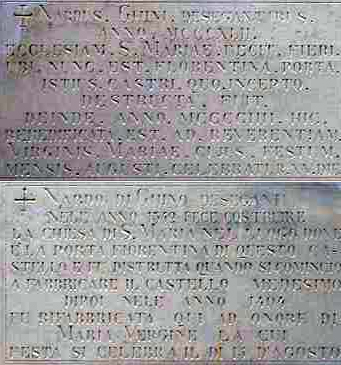 ✝ NARDUS. GUINI. DESEGANTIBUS.
ANNO. MCCCXLII.
ECCLESIAM. S. MARIAE. FECIT. FIERI.
UBI. NUNC. EST. FLORENTINA. PORTA.
ISTIUS. CASTRI. QUO. INCEPTO.
DESTRUCTA. FUIT.
DEINDE. ANNO. MCCCCIIII. HIC.
REHEDIFICATA. EST. AD. REVERENTIAM.
VIRGINIS. MARIAE. CUIUS. FESTUM.
MENSIS. AUGUSTI. CELEBRATUR. XV. DIE
✝ NARDO DI GUINO DESEGANTI
NELL ANNO 1342 FECE COSTRUIRE
LA CHIESA DI S. MARIA NEL LUOGO DOVE
È LA PORTA FIORENTINA DI QUESTO CA-
STELLO E FU DISTRUTTA QUANDO SI COMINCIÒ
A FABBRICARE IL CASTELLO MEDESIMO
DIPOI NELL ANNO 1404
FU RIFABBRICATA QUI AD ONORE DI
MARIA VERGINE LA CUI
FESTA SI CELEBRA IL DI 15 D'AGOSTO